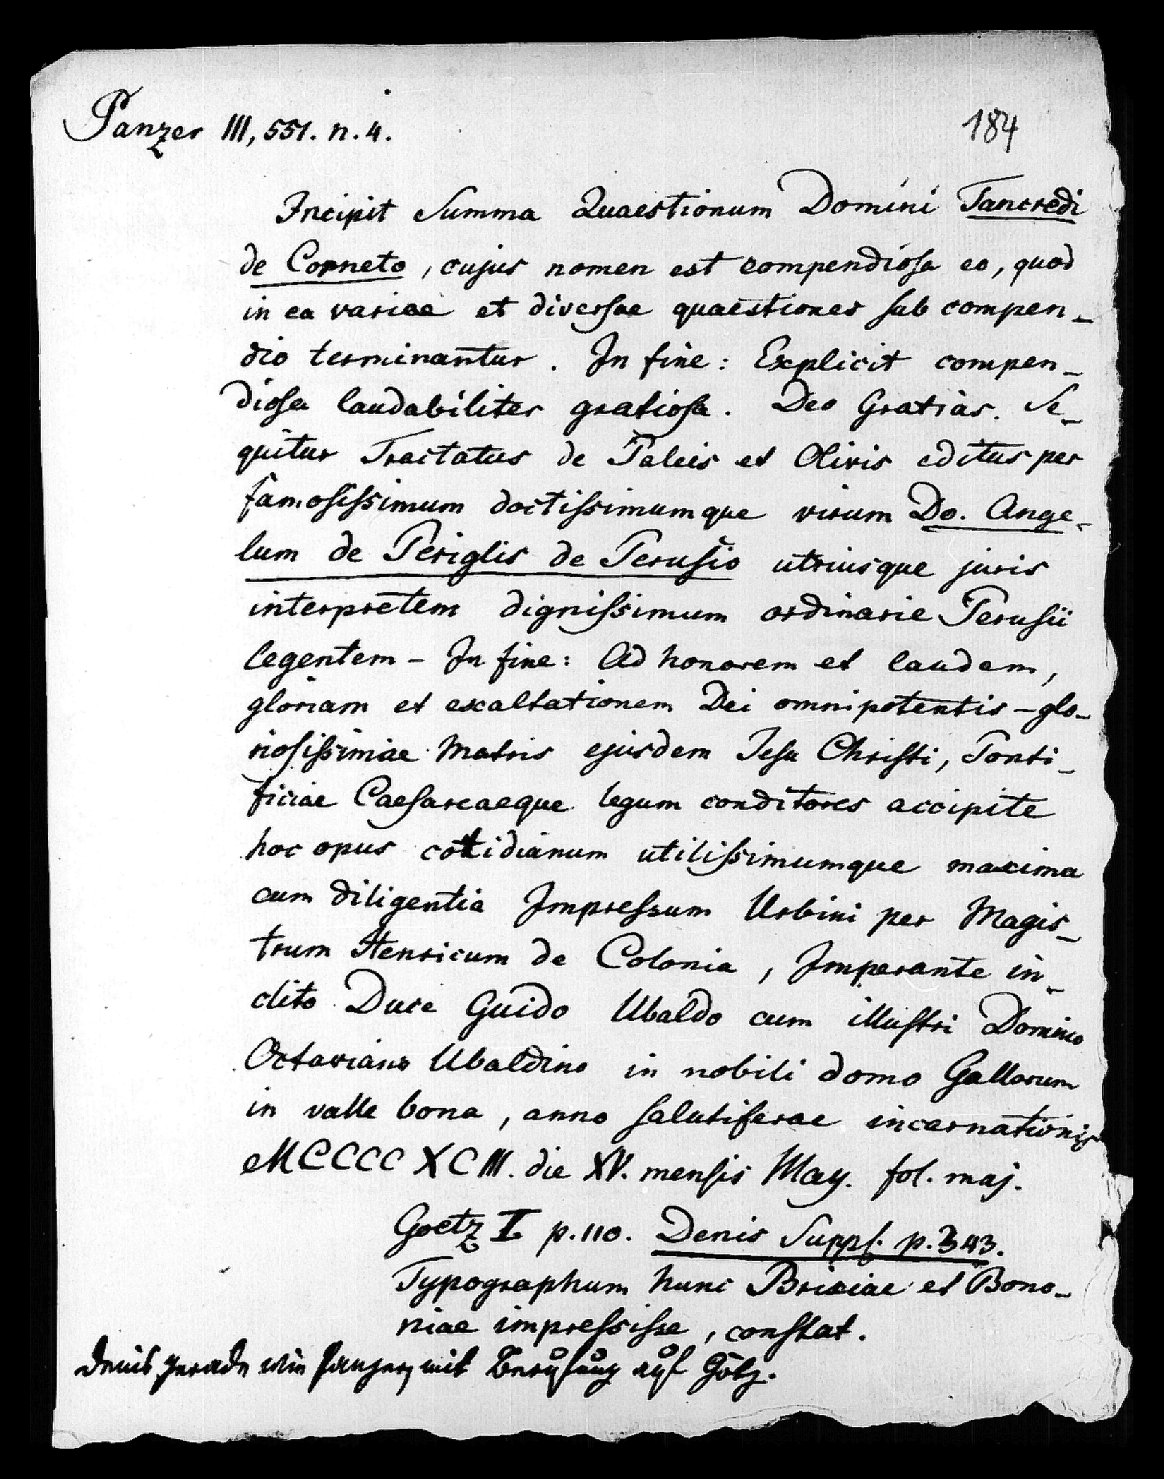 Panzer III, 551. n. 4.
184
Incipit Summa Quaestionum Domini Tancredi
de Corneto, cujus nomen est compendiosa eo, quod
in ea variae et diversae quaestiones sub compen-
dio terminantur. In fine: Explicit compen-
diosa laudabiliter gratiosa. Deo Gratias. Se-
quitur Tractatus de Paleis et Olivis editus per
famosissimum doctissimumque virum Do. Ange-
lum de Periglis de Perusio utriusque juris
interpretem dignissimum ordinarie Perusii
legentem - In fine: Ad honorem et laudem,
gloriam et exaltationem Dei omnipotentis - glo-
riosissimae Matris ejusdem Jesu Christi, Ponti-
ficiae Caesareaeque legum conditores accipite
hoc opus cotidianum utilissimumque maxima
cum diligentia Impressum Urbini per Magis-
trum Henricum de Colonia, Imperante in-
clito Duce Guido Ubaldo cum illustri Domino
Octaviano Ubaldino in nobili domo Gallorum
in valle bona, anno salutiferae incarnationis
MCCCC XCIII. die XV. mensis May. fol. maj.
Goetz I p. 110. Denis Suppl. p. 343.
Typographum hunc Brixiae et Bono-
niae impressisse, constat.
Denis gerade wie Panzer, mit Berufung auf Götz.